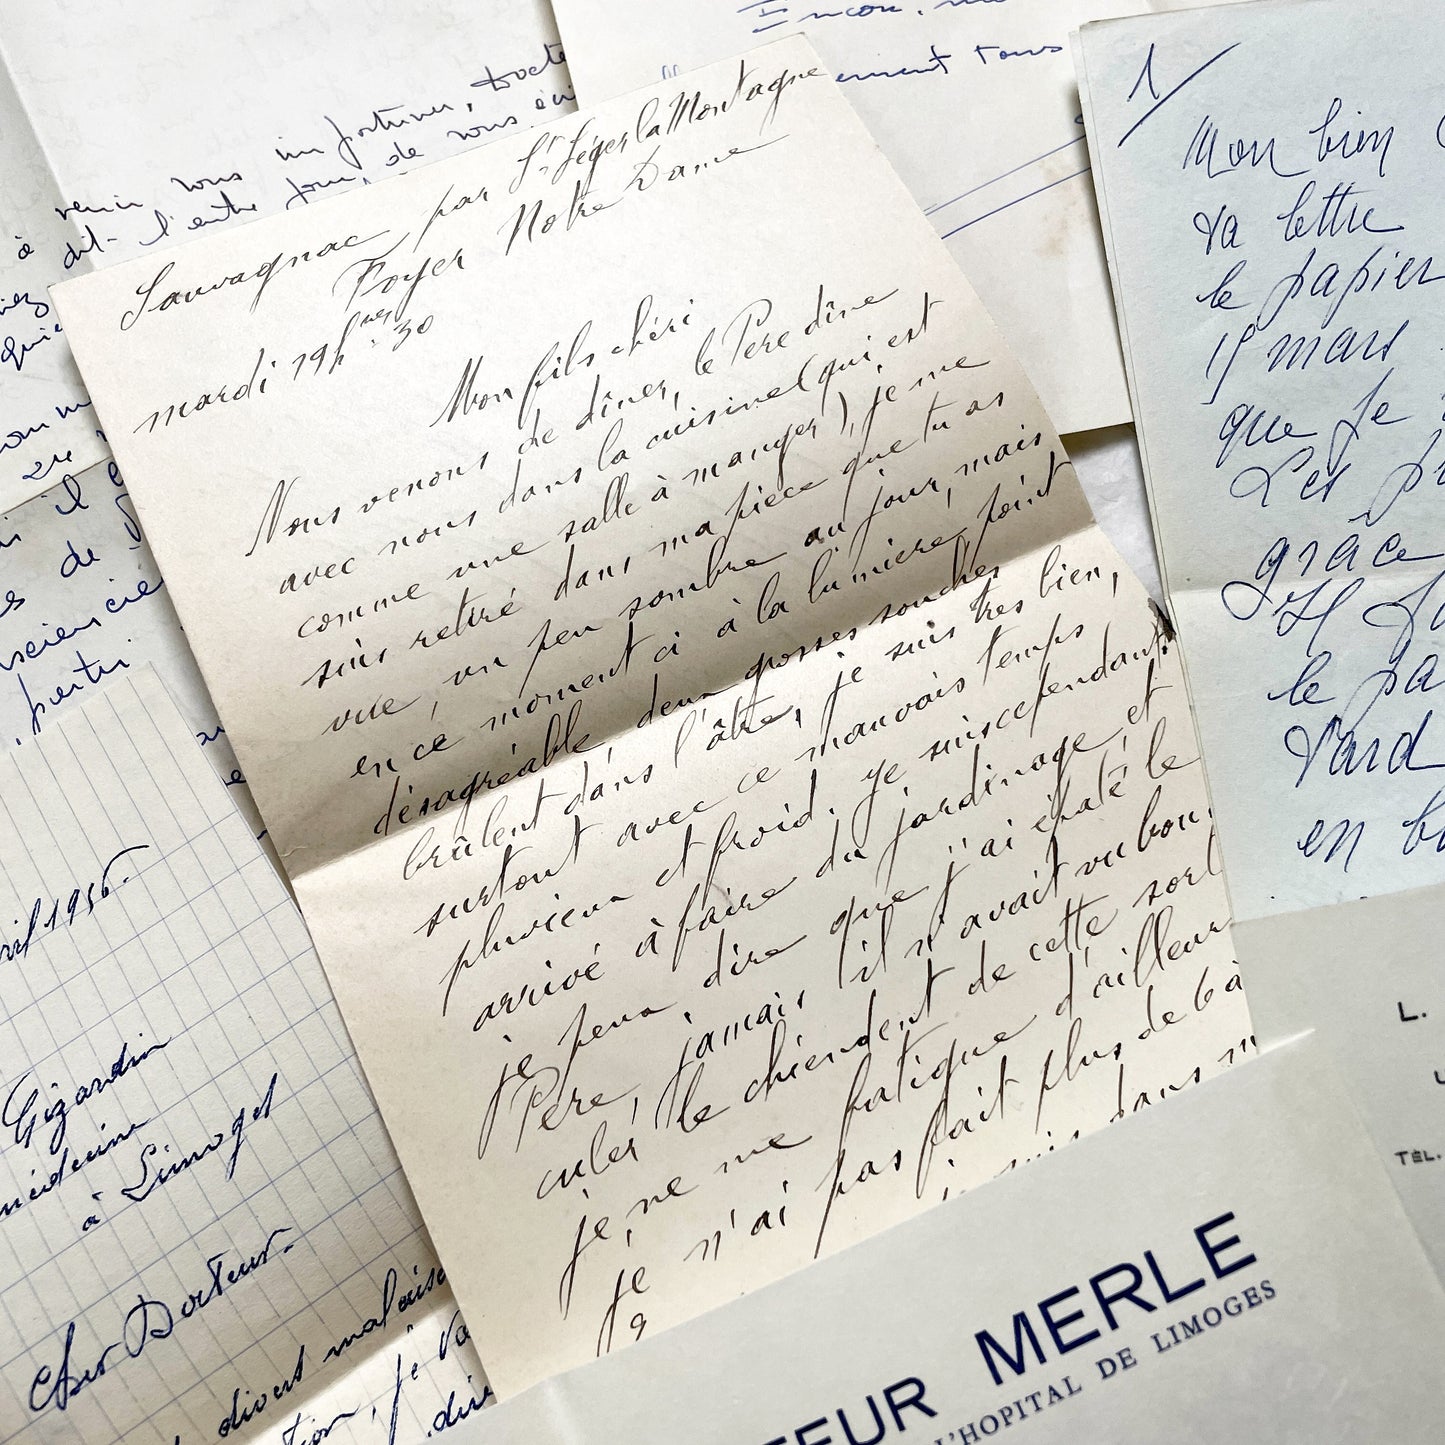 Encore
ement tous
importuner, Docte
venir vous
de vous éc
à
dit l'entre
Sauvagnac par St Léger la Montagne
Foyer Notre Dame
mardi 19hres 30
Mon fils chéri
Nous venons de dîner, le Père dîne
avec nous dans la cuisine (qui est
comme une salle à manger), je me
suis retiré dans ma pièce que tu as
vue, un peu sombre au jour, mais
en ce moment ci à la lumière, point
désagréable, deux grosses souches
brûlent dans l'âtre, je suis très bien,
surtout avec ce mauvais temps
pluvieux et froid. Je suis cependant
arrivé à faire du jardinage, et
je peux dire que j'ai épaté le
Père, jamais il n'avait vu bou.
culer le chiendent de cette sort
je ne me fatigue d'ailleur
je n'ai pas fait plus de 6 à
9
1/
Mon bien
ta lettre
le papier
15 mars
que je
Les pr
grâce
le pa
Tard
en b
il
es de
scien
ril 1956.
Gizardin
médecine
à Limoges
Cher Docteur.
divers malaise
tion, je
dire
L.
TÉL.
TEUR MERLE
L'HOPITAL DE LIMOGES